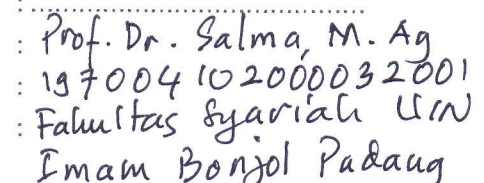 : ................................................
: Prof. Dr. Salma, M. Ag
: 197004102000032001
: Fakultas Syariah UIN
Imam Bonjol Padang